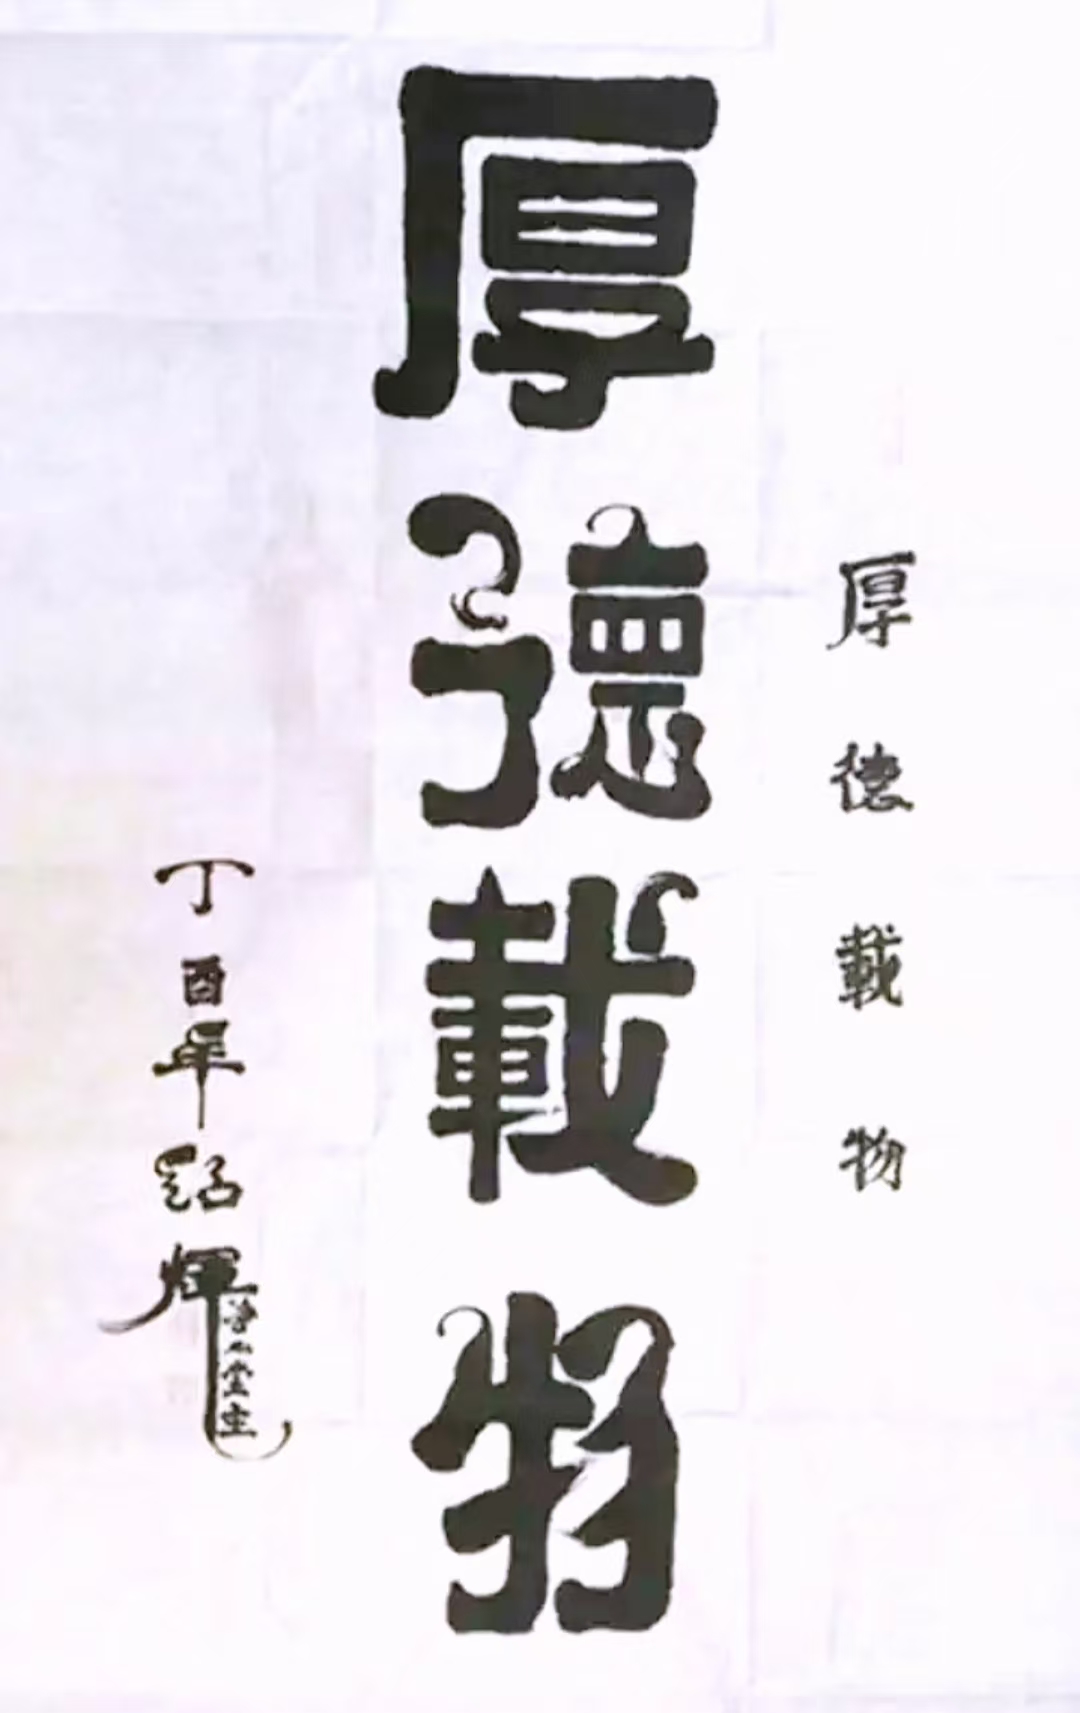 厚德載物
厚德載物
丁酉年紹輝
淨心堂主